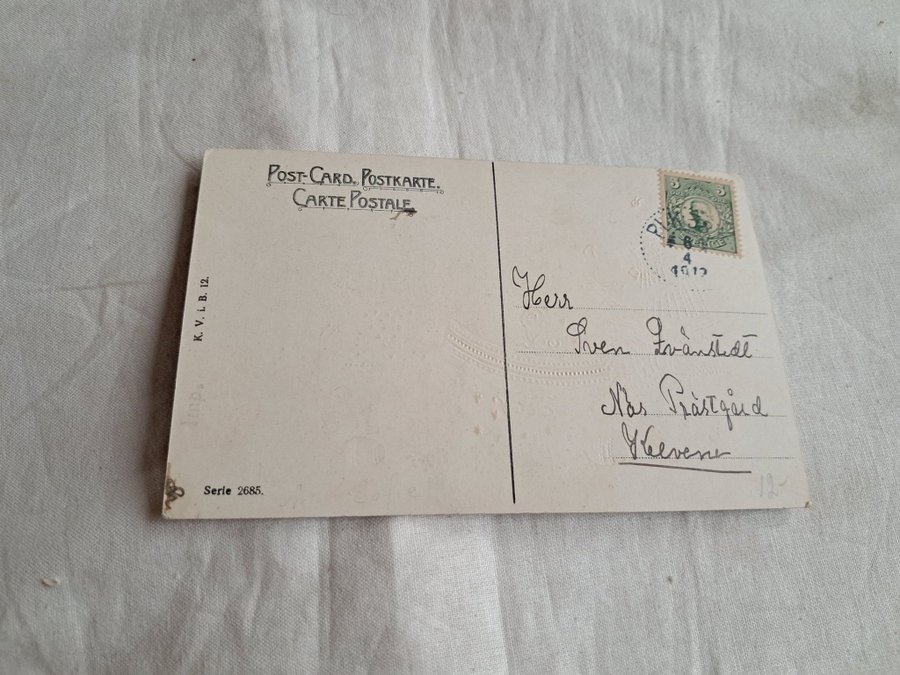 POST-CARD. POSTKARTE.
CARTE POSTALE
K. V. i. B. 12.
Serie 2685.
5 5
6
4
1912
Herr
Sven
Näs Prästgård
12-